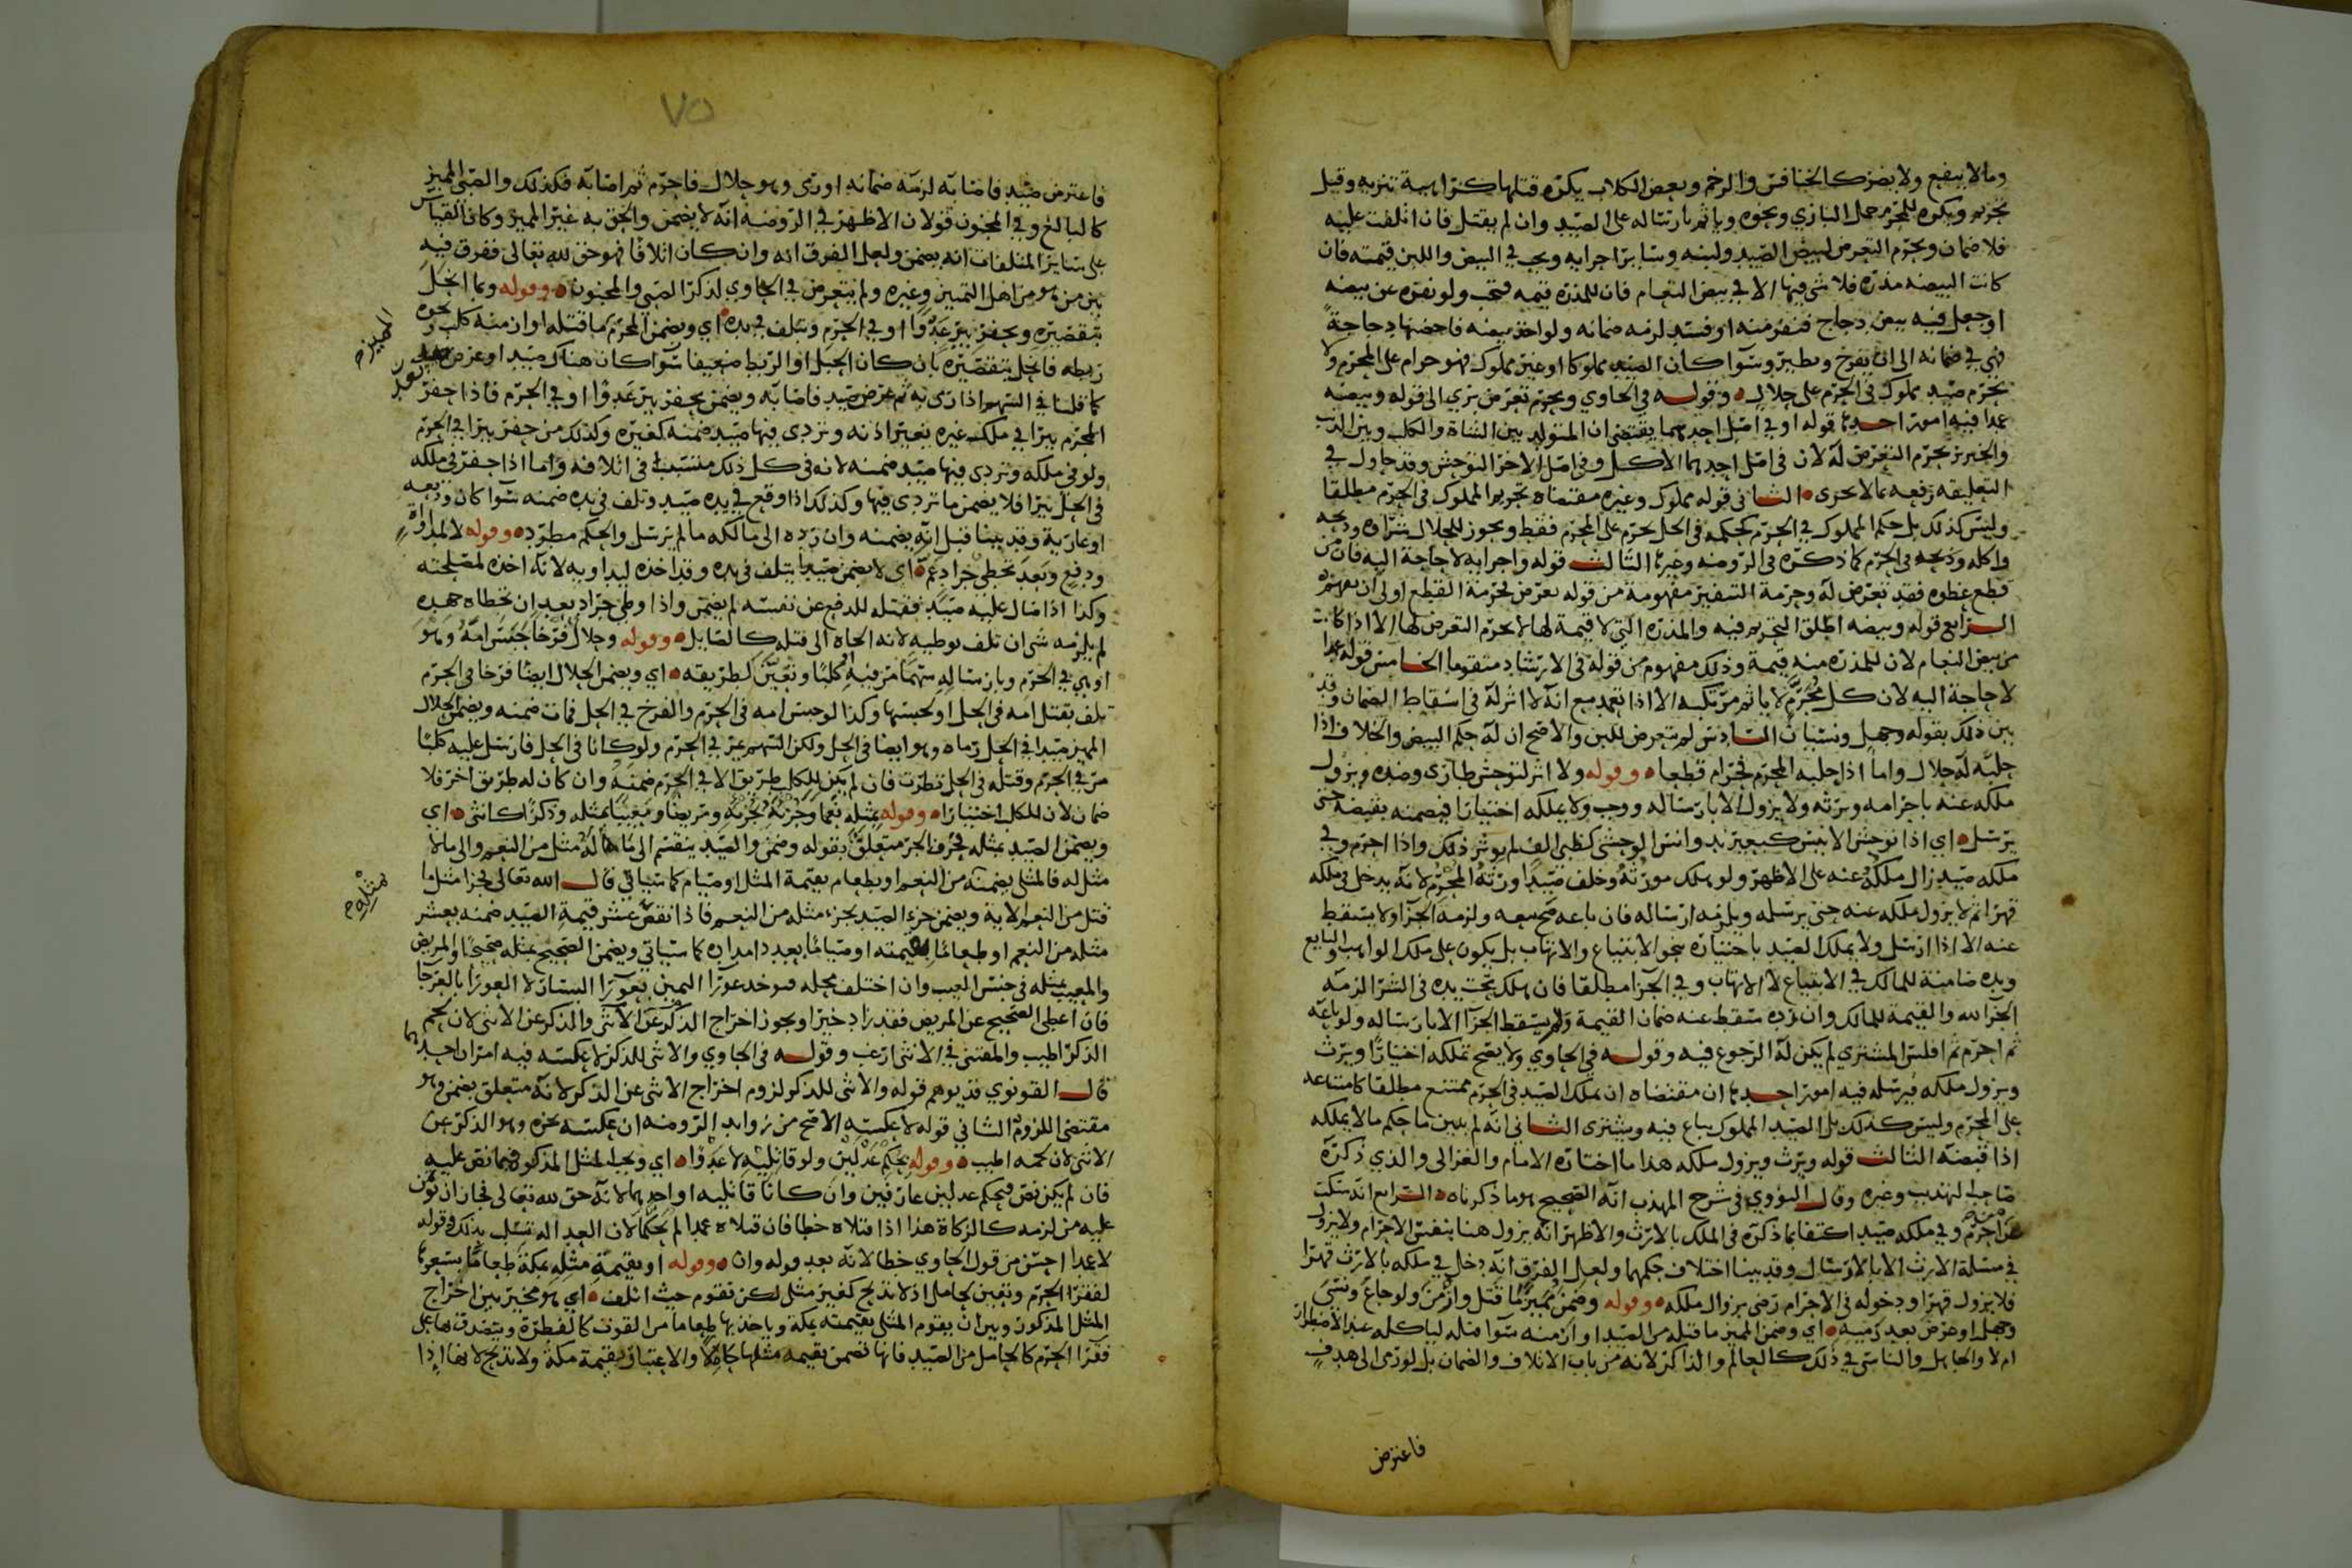 وما لا ينفع ولا يضر كالخنافس والرخم وبعض الكلاب يكره قتلها كراهية تنزيه وقيل
تحريم ويكره للمحرم حمل البازي ونحوه ويأثم بارساله على الصيد وان لم يقتل فان اتلفت عليه
فلا ضمان ويحرم التعرض لبيض الصيد ولبنه وساير اجزايه ويجب في البيض واللبن قيمته فان
كانت البيضه مذره فلا شي فيها الا في بيض النعام فان للمذره قيمه فتجب ولو نفره عن بيضه
او جعل فيه بيض دجاج فنفر منه او فسد لزمه ضمانه ولو اخذ بيضه فاحضنها دجاجة
فهي في ضمانه الى ان يفرخ ويطير وسوا كان الصيد مملوكا او غير مملوك فهو حرام على المحرم ولا
يحرم صيد مملوك في الحرم على حلال وقوله في الحاوي ويحرم تعرض بري الى قوله وبيضه
عمدا فيه امور احدها قوله او في اصل احدهما يقتضي ان المتولد بين الشاة والكلب وبين الذيب
والخنزير يحرم التعرض له لان في اصل احدهما الاكل وفي اصل الاخر التوحش وقد حاول في
التعليقه رفعه بما لا يجري الثاني قوله مملوك وغيره مقتضاه تحريم المملوك في الحرم مطلقا
وليس كذلك بل حكم المملوك في الحرم كحكمه في الحل يحرم على المحرم فقط ويجوز للحلال شراوه وذبحه
واكله وذبحه في الحرم كما ذكره في الروضه وغيرها الثالث قوله واجزايه لا حاجة اليه فان من
قطع عضوه فقد تعرض له وحرمة التنفير مفهومة من قوله تعرض فحرمة القطع اولى ان تفهم
الرابع قوله وبيضه اطلق التحريم فيه والمذره التي لا قيمة لها لا يحرم التعرض لها الا اذا كانت
من بيض النعام لان للمذره منه قيمة وذلك مفهوم من قوله في الارشاد متقوما الخامس قوله عمدا
لا حاجة اليه لان كل محرم لا ياثم مرتكبه الا اذا تعمد مع انه لا اثر له في اسقاط الضمان وقد
بين ذلك بقوله وجهل ونسيان السادس لم يتعرض للبن والاصح ان له حكم البيض والخلاف اذا
حلبه له حلال واما اذا حلبه المحرم فحرام قطعا وقوله ولا اثر لتوحش طارى وضده ويزول
ملكه عنه باحرامه ويرثه ولا يزول الا بارساله ووجب ولا يملكه اختيارا فيضمنه بقبضه حتى
يرسل اي اذا توحش الانيس كبعير ند وانس الوحشي كظبي الف لم يوثر ذلك واذا احرم وفي
ملكه صيد زال ملكه عنه على الاظهر ولو هلك مورثه وخلف صيدا ورثه المحرم لانه يدخل في ملكه
قهرا ثم لا يزول ملكه عنه حتى يرسله ويلزمه ارساله فان باعه صح بيعه ولزمه الجزا ولا يسقط
عنه الا اذا ارسل ولا يملك الصيد باختياره بنحو الابتياع والاتهاب بل يكون على ملك الواهب والبايع
ويده ضامنة للمالك في الابتياع لا الاتهاب وفي الجزا مطلقا فان هلك تحت يده في الشرا لزمه
الجزا لله والقيمة للمالك وان رده سقط عنه ضمان القيمة ولم يسقط الجزا الا بارساله ولو باعه
ثم احرم ثم افلس المشتري لم يكن له الرجوع فيه وقوله في الحاوي ولا يصح تملكه اختيارا ويرث
ويزول ملكه فيرسله فيه امور احدها ان مقتضاه ان تملك الصيد في الحرم ممتنع مطلقا كامتناعه
على المحرم وليس كذلك بل الصيد المملوك يباع فيه ويشترى الثاني انه لم يبين ما حكم ما لا يملكه
اذا قبضه الثالث قوله ويرث ويزول ملكه هذا ما اختاره الامام والغزالي والذي ذكره
صاحب التهذيب وغيره وقال النووي في شرح المهذب انه الصحيح هو ما ذكرناه الرابع انه سكت
عمن احرم وفي ملكه صيد اكتفا بما ذكره في الملك بالارث والاظهر انه يزول هنا بنفس الاحرام ولا يزول
في مسئلة الارث الا بالارسال وقد بينا اختلاف حكمهما ولعل الفرق انه دخل في ملكه بالارث قهرا
فلا يزول قهرا ودخوله في الاحرام رضى بزوال ملكه وقوله وضمن مميز ما قتل وازمن ولو جاع ونسى
وجهل او عرض بعد رميه اي وضمن المميز ما قتله من الصيد او ازمنه سوا قتله لياكله عند الاضطرار
ام لا والجاهل والناسي في ذلك كالعالم والذاكر لانه من باب الاتلاف والضمان بل لو رمى الى هدف
فاعترض
٧٥
فاعترض صيد فاصابه لزمه ضمانه او رمى وهو حلال فاحرم ثم اصابه فكذلك والصبي المميز
كالبالغ وفي المجنون قولان الاظهر في الروضه انه لا يضمن والحق به غير المميز وكان القياس
على ساير المتلفات انه يضمن ولعل الفرق انه وان كان اتلافا فهو حق لله تعالى ففرق فيه
بين من هو من اهل التمييز وغيره ولم يتعرض في الحاوي لذكر الصبي والمجنون وقوله وبما انحل
بتقصيره وبحفر بير عدوا او في الحرم وتلف في يده اي ويضمن المحرم كما قتله او ان منه كلب ونحوه
ربطه فانحل بتقصيره بان كان الحبل او الربط ضعيفا سوا كان هناك صيد او عرض بعد
كما قلنا في السهم اذا رمى به ثم عرض صيد فاصابه ويضمن بحفر بير عدوا او في الحرم فاذا حفر
المحرم بيرا في ملك غيره بغير اذنه وتردى فيها صيد ضمنه كغيره وكذلك من حفر بيرا في الحرم
ولو في ملكه وتردى فيها صيد ضمنه لانه في كل ذلك متسبب في اتلافه واما اذا حفر في ملكه
في الحل بيرا فلا يضمن ما تردى فيها وكذلك اذا وقع في يده صيد وتلف في يده ضمنه سوا كان وديعه
او عارية وقد بينا قبل انه يضمنه وان رده الى مالكه ما لم يرسل والحكم مطرد وقوله لا لمداواة
ودفع وبعد تخطي جراد عم اي لا يضمن صيدا يتلف في يده وقد اخذه ليداويه لانه اخذه لمصلحته
وكذا اذا صال عليه صيد فقتله للدفع عن نفسه لم يضمن واذا وطي جراد بعد ان تخطاه جهده
لم يلزمه شي ان تلف بوطيه لانه الجاه الى قتله كالصايل وقوله وحلال فرخا حبس امه وهو
او هي في الحرم وبارساله سهما مر فيه او كلبا وتعين كطريقه اي ويضمن الحلال ايضا فرخا في الحرم
تلف بقتل امه في الحل او لحبسها وكذا لو حبس امه في الحرم والفرخ في الحل فمات ضمنه ويضمن الحلال
المميز صيدا في الحل رماه وهو ايضا في الحل ولكن السهم عبر في الحرم ولو كانا في الحل فارسل عليه كلبا
مر في الحرم وقتله في الحل نظرت فان لم يكن للكلب طريق الا في الحرم ضمنه وان كان له طريق اخر فلا
ضمان لان للكلب اختيارا وقوله بمثله نعما وجزئه بجزئه ومريضا ومعيبا بمثله وذكرا كانثى اي
ويضمن الصيد بمثله فحرف الجر متعلق بقوله وضمن والصيد ينقسم الى ما له مثل من النعم والى ما لا
مثل له فالمثلي يضمنه من النعم او بطعام بقيمة المثل او صيام كما سياتي قال الله تعالى فجزا مثل ما
قتل من النعم الاية ويضمن جزء الصيد بجزء مثله من النعم فاذا نقص عشر قيمة الصيد ضمنه بعشر
مثله من النعم او طعاما بقيمته او صياما بعدد امداده كما سياتي ويضمن الصحيح بمثله صحيحا والمريض
والمعيب بمثله في جنس العيب وان اختلف محله فيوخذ عورا اليمين بعورا اليسار لا العورا بالعرجا
فان اعطى الصحيح عن المريض فقد زاد خيرا ويجوز اخراج الذكر عن الانثى والذكر عن الانثى لان لحم
الذكر اطيب والمقتني في الانثى ارغب وقوله في الحاوي والانثى للذكر لا عكسه فيه امران احدهما
قال القونوي قد يوهم قوله والانثى للذكر لزوم اخراج الانثى عن الذكر لانه متعلق بضمن وهو
مقتضى اللزوم الثاني قوله لا عكسه الاصح من زوايد الروضه ان عكسه يجزه وهو الذكر عن
الانثى لان لحمه اطيب وقوله بحكم عدلين ولو قاتليه لا عدوا اي ويجب المثل المذكور فيما نص عليه
فان لم يكن نص فبحكم عدلين عارفين وان كانا قاتليه او احدهما لانه حق لله تعالى فجاز ان يكون
عليه من لزمه كالزكاة هذا اذا قتلاه خطا فان قتلاه عمدا لم يحكما لان العدالة تسلب بذلك وقوله
لا عمدا احسن من قول الحاوي خطا لانه بعد قوله وان وقوله او بقيمة مثله بمكة طعاما بسعرها
لفقرا الحرم وتعين لحامل اذ لا تذبح كغير مثلي لكن تقوم حيث اتلف اي هو مخير بين اخراج
المثل المذكور وبين ان يقوم المثلي بقيمته بمكة وياخذ بها طعاما من القوت كالفطرة ويتصدق بها على
فقرا الحرم كالحامل من الصيد فانها تضمن بقيمه مثلها حاملا والاعتبار بقيمة مكة ولا تذبح لانها اذا